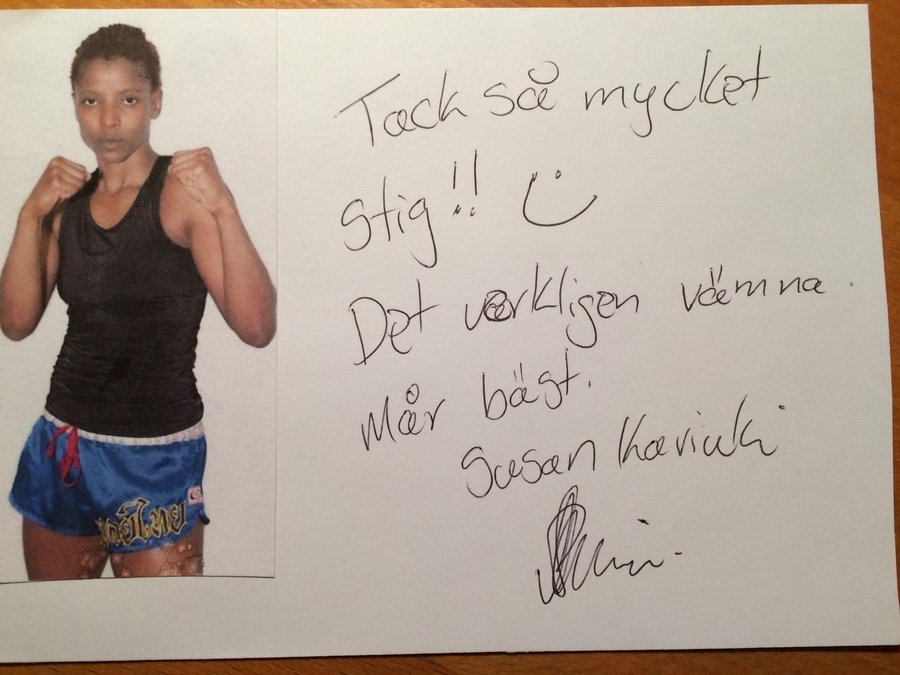 Tack så mycket
stig!!
Det verkligen vämna.
Mår bäst.
Susan Kariuki